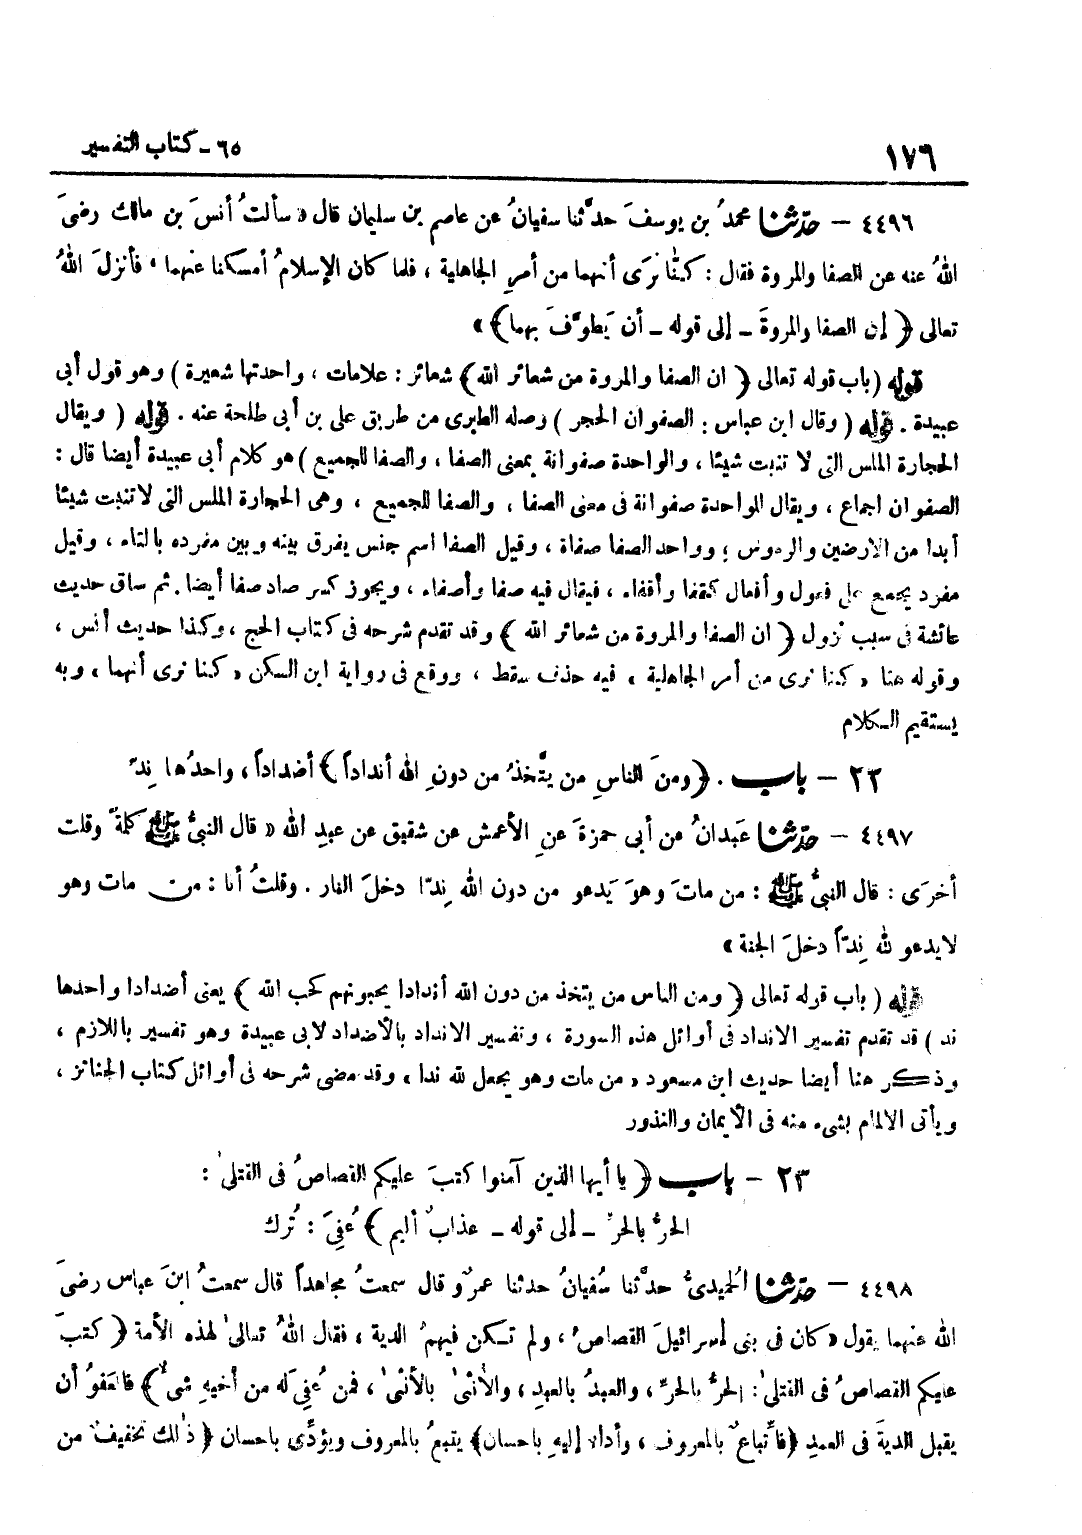 ١٧٦
٦٥ - كتاب التفسير
٤٤٩٦ - حدّثنا محمدُ بن يوسفَ حدَّثنا سفيانُ عن عاصم بن سليمان قال « سألتُ أنسَ بن مالك رضىَ
اللهُ عنه عن الصفا والمروة فقال : كنّا نرَى أنهما من أمرِ الجاهلية ، فلما كان الإسلامُ أمسكنا عنهما ، فأنزلَ اللهُ
تعالى ﴿ إن الصفا والمروةَ - إلى قوله - أن يَطوَّفَ بهما ﴾ »
قوله ( باب قوله تعالى ﴿ ان الصفا والمروة من شعائر الله ﴾ شعائر : علامات ، واحدتها شعيرة ) وهو قول أبى
عبيدة . قوله ( وقال ابن عباس : الصفوان الحجر ) وصله الطبرى من طريق على بن أبى طلحة عنه . قوله ( ويقال
الحجارة الملس التى لا تنبت شيئا ، والواحدة صفوانة بمعنى الصفا ، والصفا للجميع ) هو كلام أبى عبيدة أيضا قال :
الصفوان اجماع ، ويقال للواحدة صفوانة فى معنى الصفا ، والصفا للجميع ، وهى الحجارة الملس التى لا تنبت شيئا
أبدا من الارضين والرءوس ؛ وواحد الصفا صفاة ، وقيل الصفا اسم جنس يفرق بينه وبين مفرده بالتاء ، وقيل
مفرد يجمع على فعول وأفعال كقفا وأقفاء ، فيقال فيه صفا وأصفاء ، ويجوز كسر صاد صفا أيضا . ثم ساق حديث
عائشة فى سبب نزول ﴿ ان الصفا والمروة من شعائر الله ﴾ وقد تقدم شرحه فى كتاب الحج ، وكذا حديث أنس ،
وقوله هنا « كنا نرى من أمر الجاهلية » فيه حذف سقط ، ووقع فى رواية ابن السكن « كنا نرى أنهما » وبه
يستقيم الـكلام
٢٢ - باب . ﴿ ومنَ الناسِ من يتَّخذُ من دونِ الله أنداداً ﴾ أضداداً ، واحدُها نِدّ
٤٤٩٧ - حدّثنا عَبدانُ عن أبى حمزةَ عنِ الأعمش عن شقيق عن عبدِ الله « قال النبىُّ ﷺ كلمةً وقلت
أخرَى : قال النبىُّ ﷺ : من ماتَ وهوَ يَدعو من دون الله نِدّا دخلَ النار . وقلتُ أنا : من مات وهو
لا يدعو لله نِدّاً دخلَ الجنة »
قوله ( باب قوله تعالى ﴿ ومن الناس من يتخذ من دون الله أندادا يحبونهم كحب الله ﴾ يعنى أضدادا واحدها
ند ) قد تقدم تفسير الانداد فى أوائل هذه السورة ، وتفسير الانداد بالأضداد لابى عبيدة وهو تفسير باللازم ،
وذكر هنا أيضا حديث ابن مسعود « من مات وهو يجعل لله ندا » وقد مضى شرحه فى أوائل كتاب الجنائز ،
ويأتى الالمام بشىء منه فى الأيمان والنذور
٢٣ - باب ﴿ يا أيها الذين آمنوا كتبَ عليكم القصاصُ فى القتلىٰ :
الحرُّ بالحرّ - إلى قوله - عذابٌ أليم ﴾ عُفِىَ : تُرك
٤٤٩٨ - حدّثنا الحُميدىُّ حدَّثنا سُفيانُ حدثنا عمرٌو قال سمعتُ مجاهداً قال سمعتُ ابنَ عباس رضىَ
الله عنهما يقول « كان فى بنى إسرائيلَ القصاصُ ، ولم تـكن فيهمُ الدية ، فقال اللهُ تعالىٰ لهذه الأمة ﴿ كتبَ
عليكم القصاصُ فى القتلىٰ : الحرُّ بالحرِّ ، والعبدُ بالعبدِ ، والأنثىٰ بالأنثىٰ ، فمن عُفىَ له من أخيهِ شىءٌ ﴾ فالعَفوُ أن
يقبل الديةَ فى العمدِ ﴿ فاتِّباعٌ بالمعروف ، وأداءٌ إليهِ باحسان ﴾ يتبعُ بالمعروف ويؤدِّى باحسان ﴿ ذٰلك تخفيفٌ من